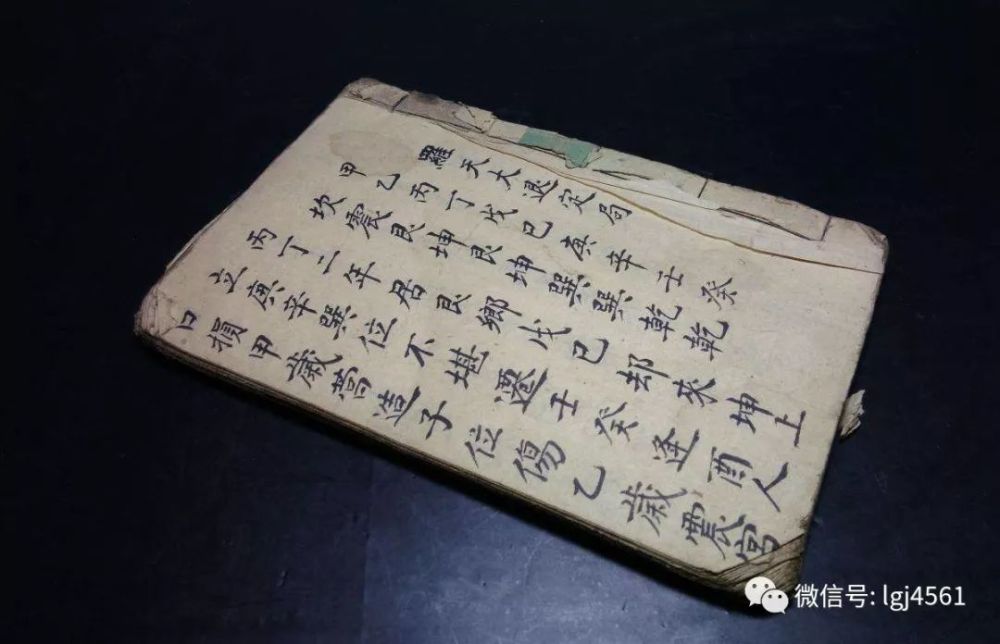 羅天大退定局
甲乙丙丁戊己庚辛壬癸
坎震艮坤艮坤巽巽乾乾
丙丁二年居艮鄉戊己却來坤上
立庚辛巽位不堪遷壬癸逢酉人
口損甲歲造子位傷乙歲震宮
微信号: lgj4561